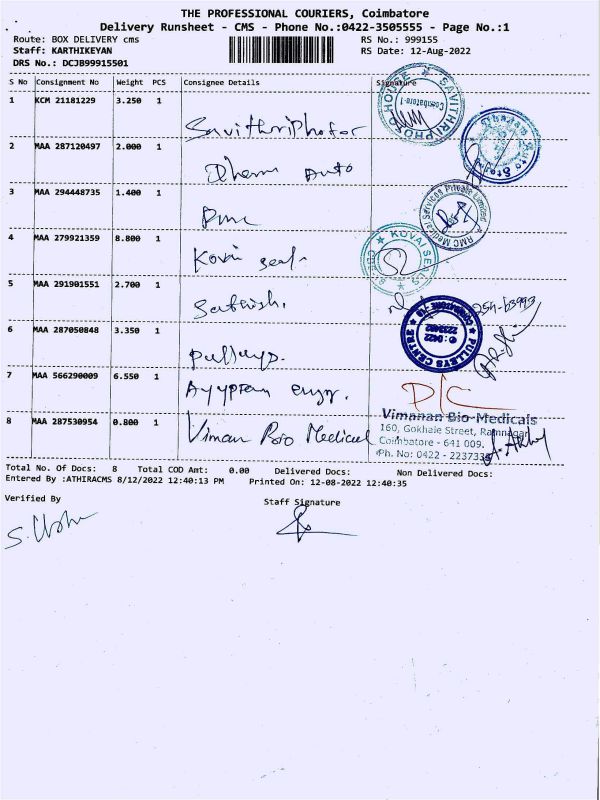 THE PROFESSIONAL COURIERS, Coimbatore
Delivery Runsheet - CMS - Phone No.:0422-3505555 - Page No.:1
Route: BOX DELIVERY cms RS No.: 999155
Staff: KARTHIKEYAN RS Date: 12-Aug-2022
DRS No.: DCJB99915501
S No Consignment No Weight PCS Consignee Details Signature
1 KCM 21181229 3.250 1
SAVITHRI PHOTO HOUSE Coimbatore-1
2 MAA 287120497 2.000 1
Auto
3 MAA 294448735 1.400 1
RMC Medical Services Private Limited
4 MAA 279921359 8.800 1
Kovai seal
KOVAI SEALS
5 MAA 291901551 2.700 1
Sathish.
6 MAA 287050848 3.350 1
pulleys.
PULLEYS CENTRE
7 MAA 566290009 6.550 1
D/C
8 MAA 287530954 0.800 1
Viman Bio Medical
Vimanan Bio-Medicals
160, Gokhale Street, Ramnagar
Coimbatore - 641 009.
Ph. No: 0422 - 2237335
Total No. Of Docs: 8 Total COD Amt: 0.00 Delivered Docs: Non Delivered Docs:
Entered By :ATHIRACMS 8/12/2022 12:40:13 PM Printed On: 12-08-2022 12:40:35
Verified By Staff Signature